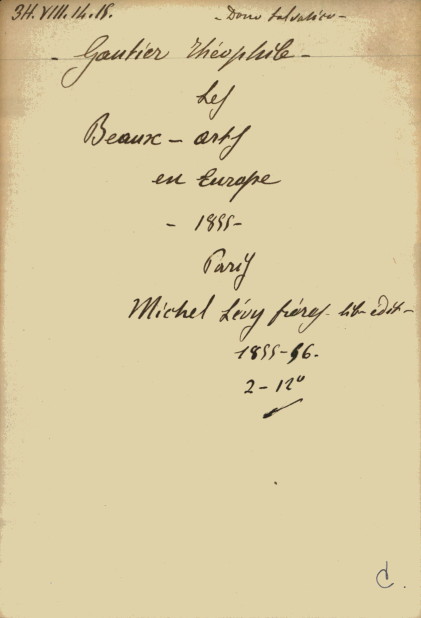 34.VIII.14.18. - Dono Salvatico -
- Gautier Théophile -
Les
Beaux - arts
en Europe
- 1855 -
Paris
Michel Lévy frères lib- édit -
1855-56.
2 - 12°
C.